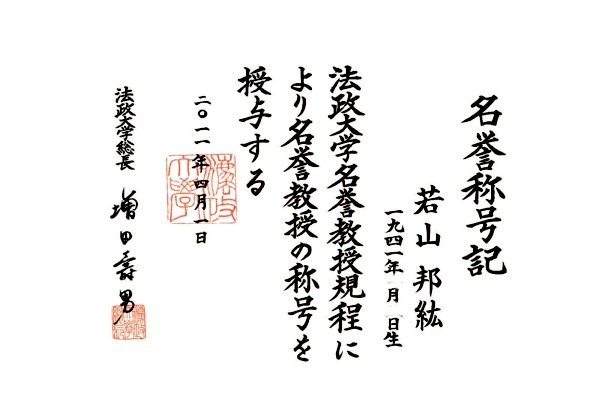 名誉称号記
若山 邦紘
一九四一年 月 日生
法政大学名誉教授規程に
より名誉教授の称号を
授与する
二〇一一年四月一日
法政大学
法政大学総長 増田壽男